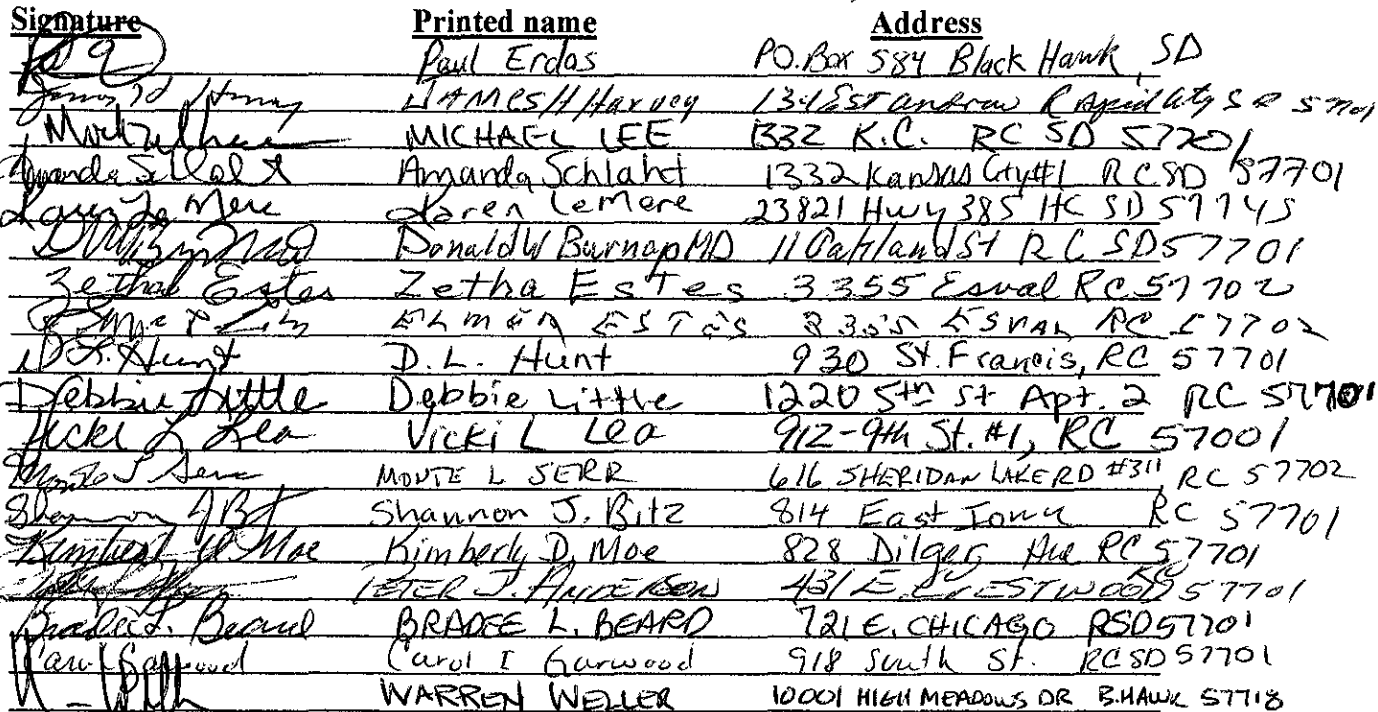 Signature Printed name Address
Paul Erdos P.O. Box 584 Black Hawk, SD
JAMES H Harvey Rapid City SD 57701
MICHAEL LEE 1332 K.C. RC SD 57701
Amanda Schlaht Amanda Schlaht 1332 Kansas City #1 RC SD 57701
Karen LeMere Karen LeMere 23821 Hwy 385 HC SD 57745
Donald W Burnap MD 11 Oakland St RC SD 57701
Zetha Estes Zetha Estes 3355 Esval RC 57702
ELMER ESTES ESVAL RC 57702
D.L. Hunt D.L. Hunt 930 St. Francis, RC 57701
Debbie Little Debbie Little 1220 5th St Apt. 2 RC 57701
Vicki L Lea Vicki L Lea 912-9th St. #1, RC 57001
MONTE L SERR 616 SHERIDAN LAKE RD #311 RC 57702
Shannon J. Bitz 814 East Iowa RC 57701
Kimberly D. Moe 828 Dilger Ave RC 57701
PETER J. ANDERSON 431 E. CRESTWOOD 57701
Bradee L. Beard BRADEE L. BEARD 721 E. CHICAGO RSD 57701
Carol Garwood Carol I Garwood 918 South St. RC SD 57701
WARREN WELLER 10001 HIGH MEADOWS DR B.HAWK 57718